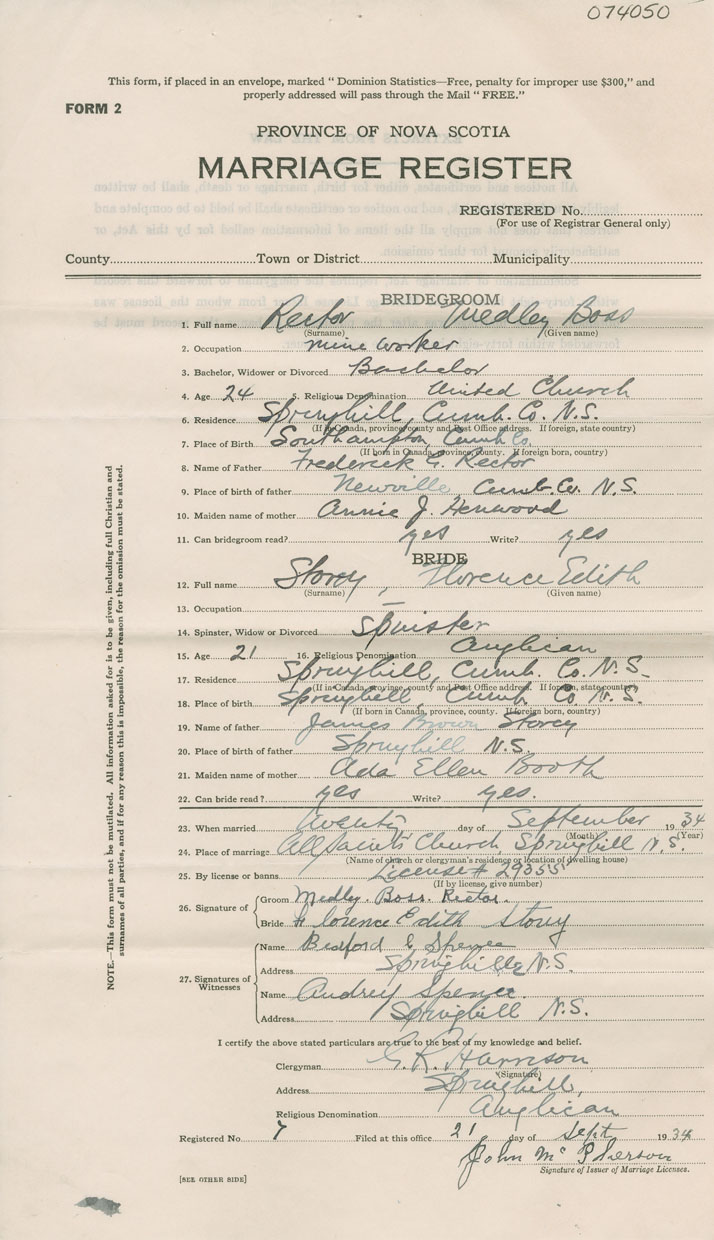 074050
This form, if placed in an envelope, marked “ Dominion Statistics—Free, penalty for improper use $300,” and
properly addressed will pass through the Mail “ FREE.”
FORM 2
PROVINCE OF NOVA SCOTIA
MARRIAGE REGISTER
REGISTERED No.
(For use of Registrar General only)
County Town or District Municipality
BRIDEGROOM
1. Full name Rector Medley Boss
(Surname) (Given name)
2. Occupation mine worker
3. Bachelor, Widower or Divorced Bachelor
4. Age 24 5. Religious Denomination United Church
6. Residence Springhill, Cumb. Co. N.S.
(If in Canada, province, county and Post Office address. If foreign, state country)
7. Place of Birth Southampton, Cumb Co.
(If born in Canada, province, county. If foreign born, country)
8. Name of Father Frederick G. Rector
9. Place of birth of father Newville Cumb. Co. N.S.
10. Maiden name of mother Annie J. Henwood
11. Can bridegroom read? yes Write? yes
BRIDE
12. Full name Storey, Florence Edith
(Surname) (Given name)
13. Occupation —
14. Spinster, Widow or Divorced Spinster
15. Age 21 16. Religious Denomination Anglican
17. Residence Springhill, Cumb. Co. N.S.
(If in Canada, province, county and Post Office address. If foreign, state country)
18. Place of birth Springhill, Cumb Co N.S.
(If born in Canada, province, county. If foreign born, country)
19. Name of father James Brown Storey
20. Place of birth of father Springhill N.S.
21. Maiden name of mother Ada Ellen Booth
22. Can bride read? yes Write? yes.
23. When married Twenty day of September 19 34
(Month) (Year)
24. Place of marriage All Saints Church, Springhill N.S.
(Name of church or clergyman's residence or location of dwelling house)
25. By license or banns License # 29355
(If by license, give number)
26. Signature of Groom Medley Boss Rector.
Bride Florence Edith Storey
27. Signatures of Witnesses Name Bedford Spence
Address Springhill N.S.
Name Audrey Spence.
Address Springhill N.S.
I certify the above stated particulars are true to the best of my knowledge and belief.
Clergyman G.R. Harrison
(Signature)
Address Springhill,
Religious Denomination Anglican
Registered No 7 Filed at this office 21 day of Sept 19 34
John McPherson
Signature of Issuer of Marriage Licenses.
[SEE OTHER SIDE]
NOTE.—This form must not be mutilated. All information asked for is to be given, including full Christian and
surnames of all parties, and if for any reason this is impossible, the reason for the omission must be stated.